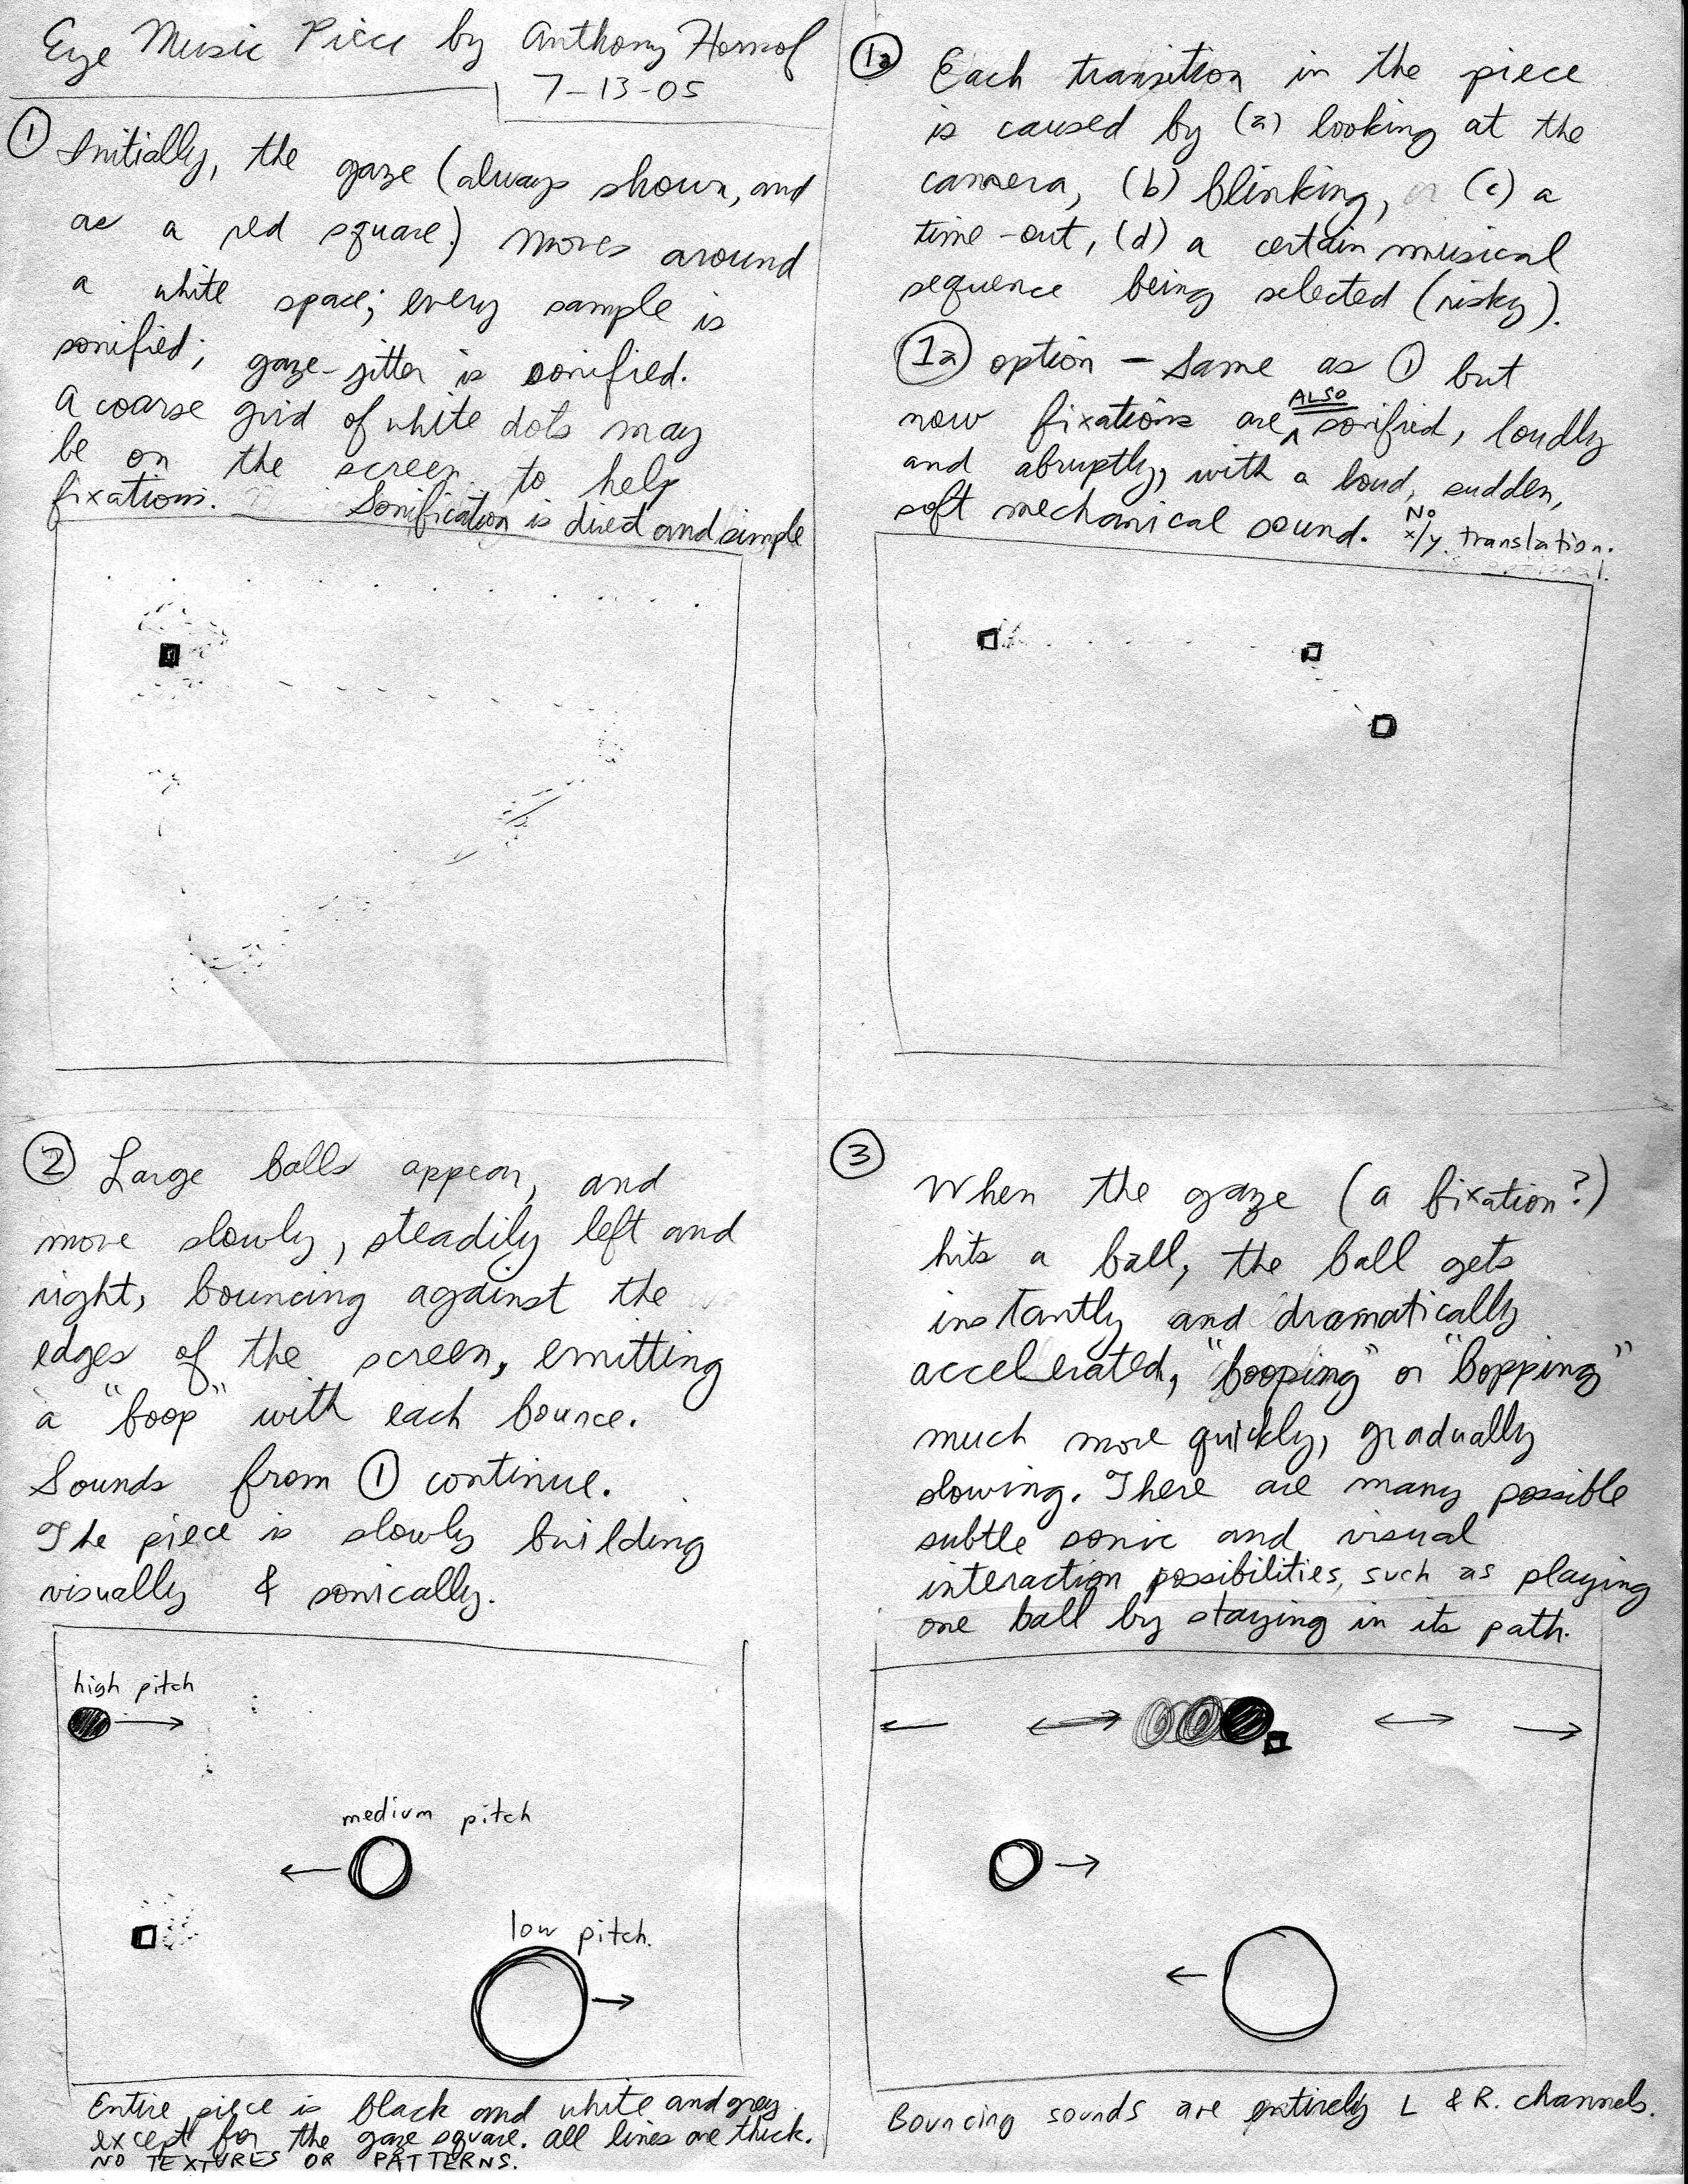 Eye Music Piece by Anthony Hornof
7-13-05
① Initially, the gaze (always shown, and
as a red square) moves around
a white space; every sample is
sonified; gaze-jitter is sonified.
A coarse grid of white dots may
be on the screen to help
fixations. Sonification is direct and simple
1a Each transition in the piece
is caused by (a) looking at the
camera, (b) blinking, (c) a
time-out, (d) a certain musical
sequence being selected (risky).
1a option — Same as ① but
ALSO
now fixations are ^ sonified, loudly
and abruptly, with a loud, sudden,
soft mechanical sound. No
x/y translation.
② Large balls appear, and
move slowly, steadily left and
right, bouncing against the
edges of the screen, emitting
a "boop" with each bounce.
Sounds from ① continue.
The piece is slowly building
visually & sonically.
high pitch
medium pitch
low pitch.
Entire piece is black and white and grey
except for the gaze square. All lines are thick.
NO TEXTURES OR PATTERNS.
③ When the gaze (a fixation?)
hits a ball, the ball gets
instantly and dramatically
accelerated, "booping" or "bopping"
much more quickly, gradually
slowing. There are many possible
subtle sonic and visual
interaction possibilities, such as playing
one ball by staying in its path.
Bouncing sounds are entirely L & R. channels.